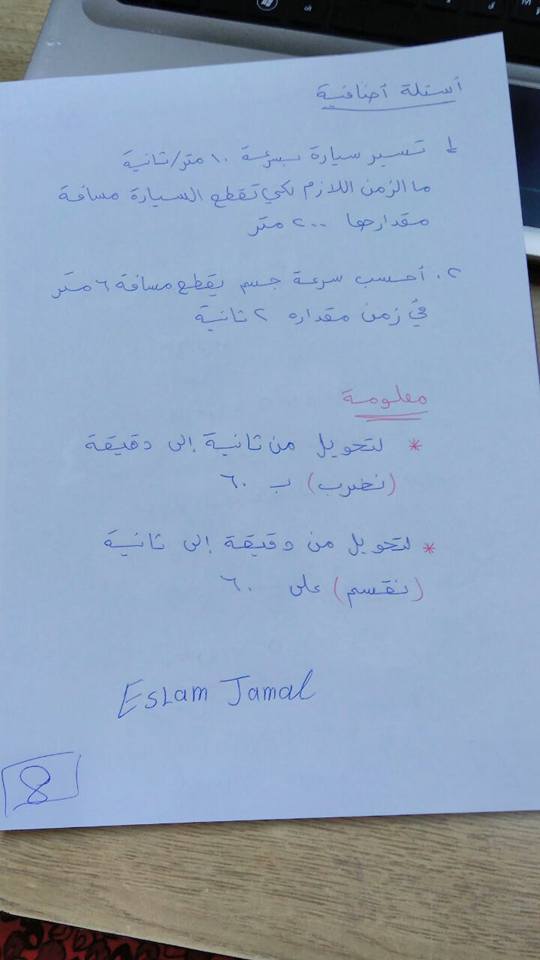 أسئلة أضافية
١. تسير سيارة بسرعة ١٠ متر/ثانية
ما الزمن اللازم لكي تقطع السيارة مسافة
مقدارها ٢٠٠ متر
٢. أحسب سرعة جسم يقطع مسافة ٦ متر
في زمن مقداره ٢ ثانية
معلومة
* لتحويل من ثانية إلى دقيقة
(نضرب) ب ٦٠
* لتحويل من دقيقة إلى ثانية
(نقسم) على ٦٠
Eslam Jamal
8